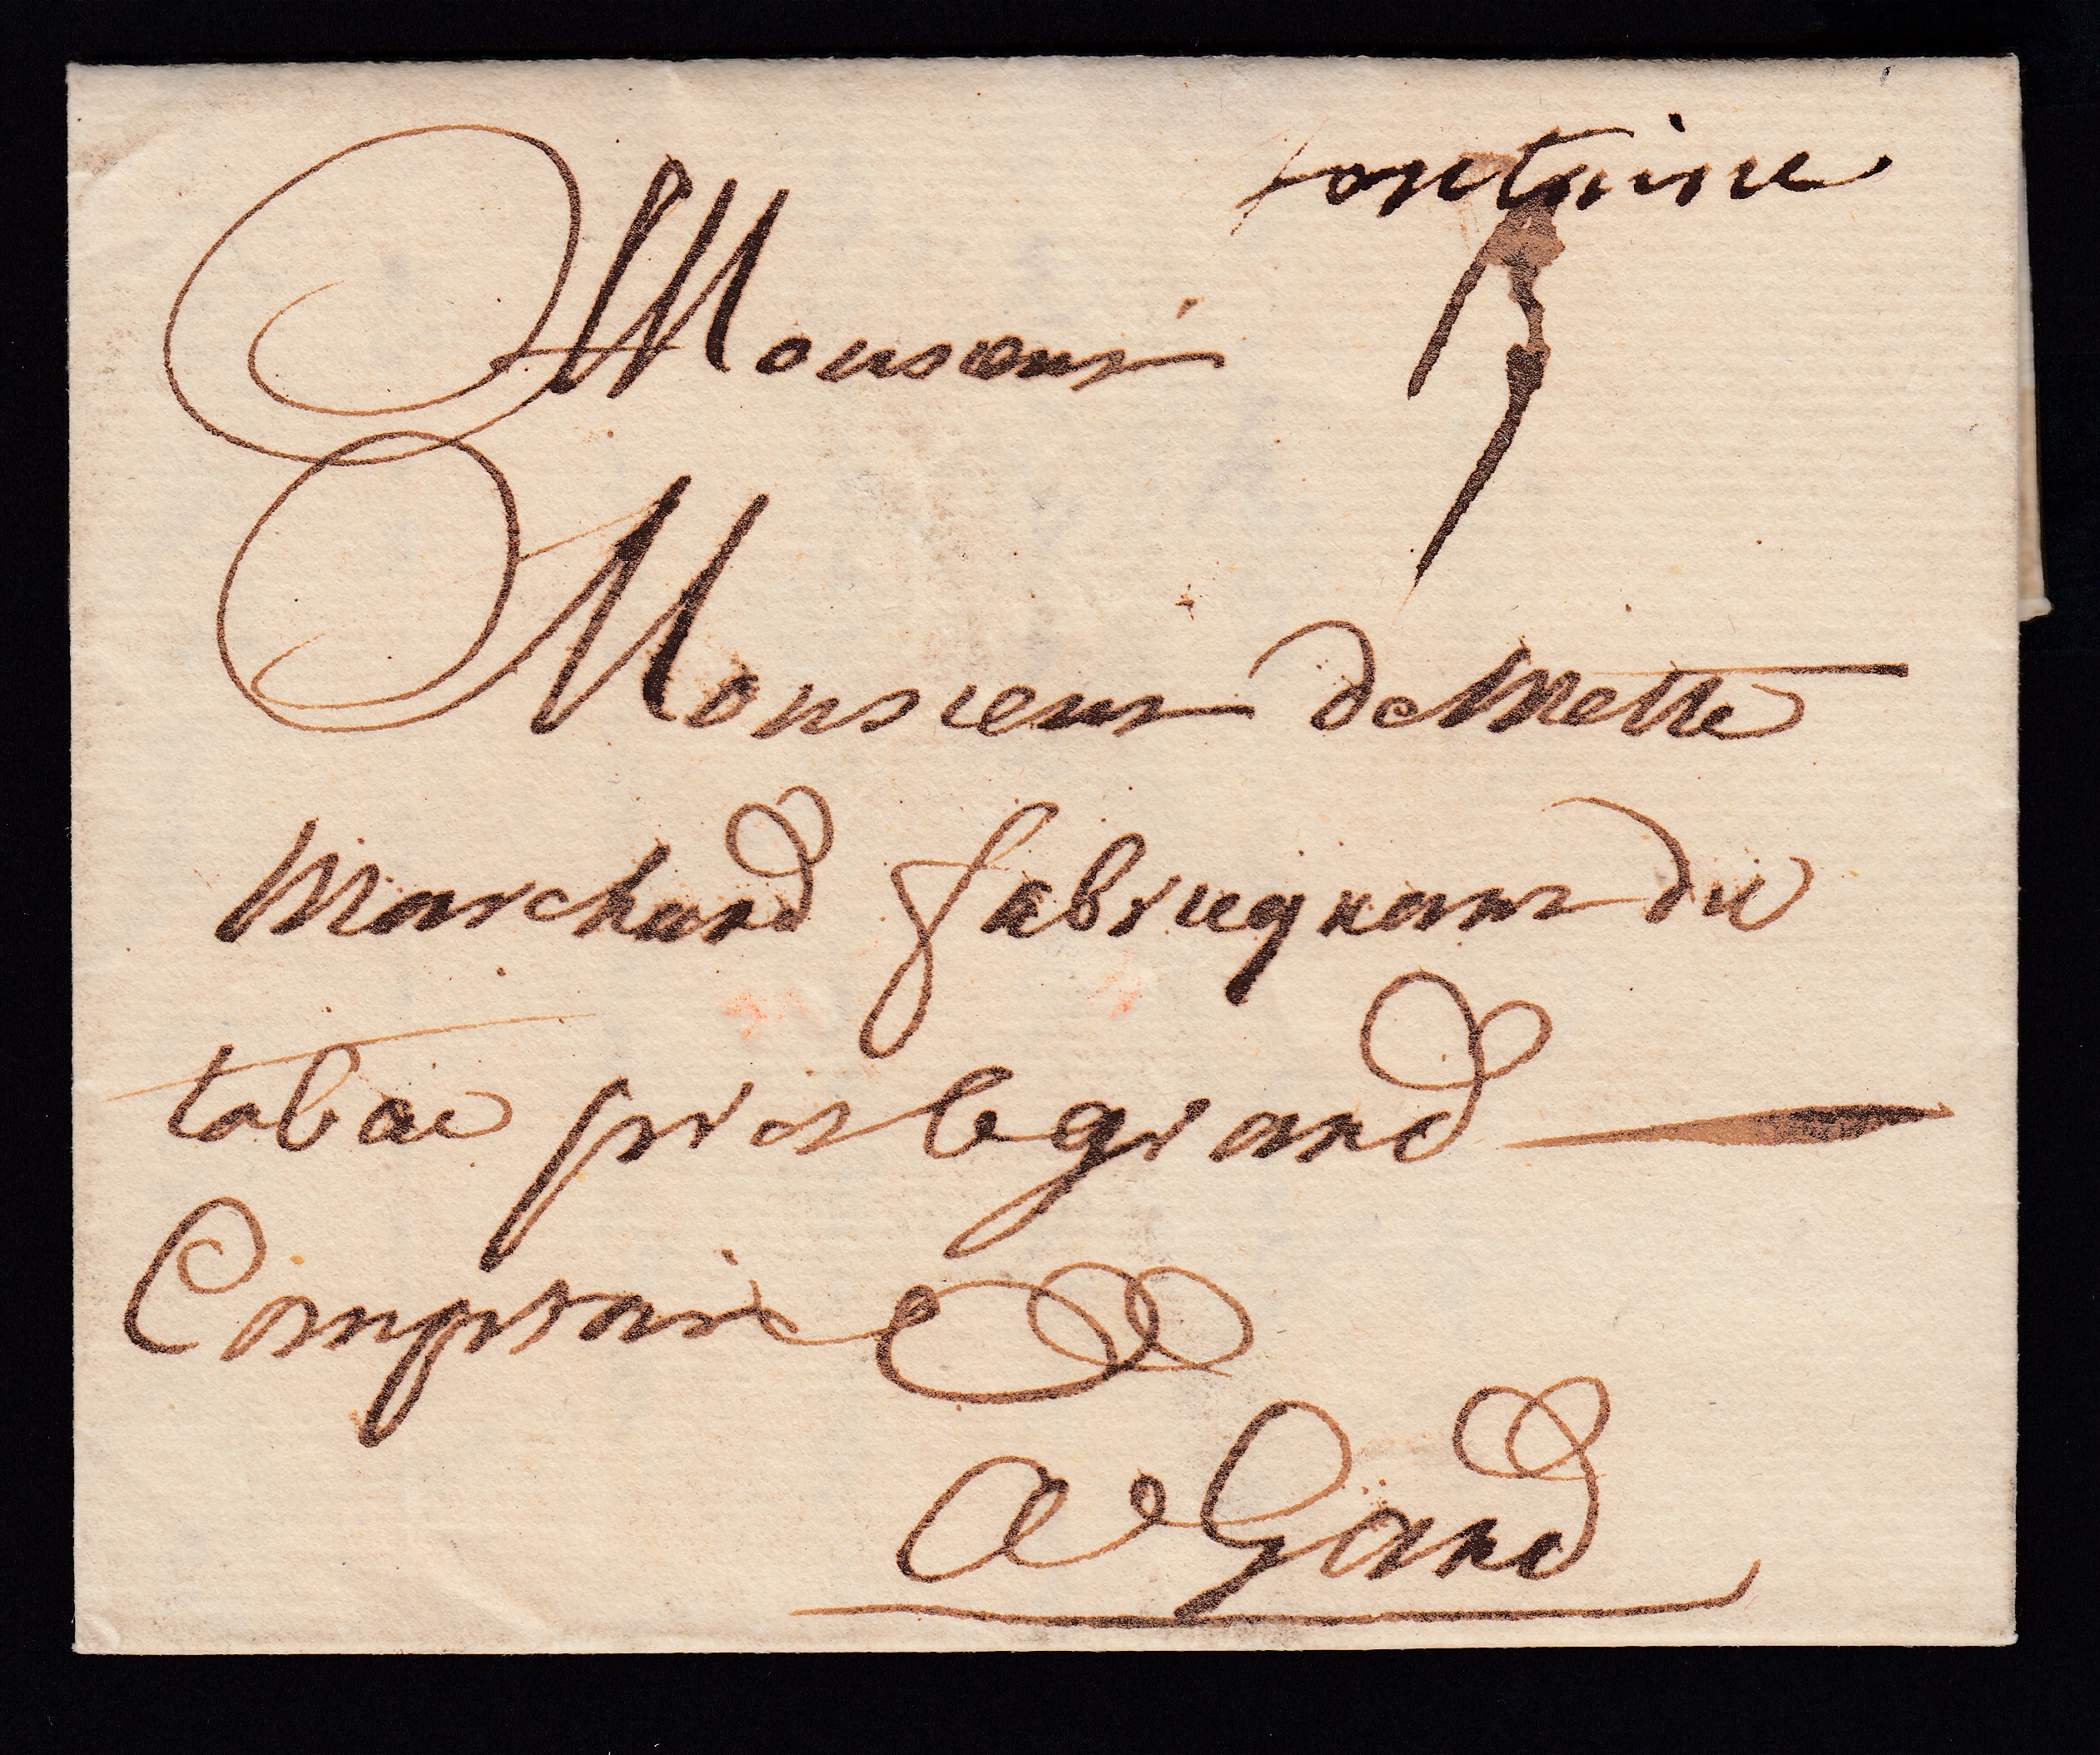 fontaine
Monsieur
Monsieur de Mette
Marchand fabriquant du
tabac pres le grand
Comptoire
A Gand